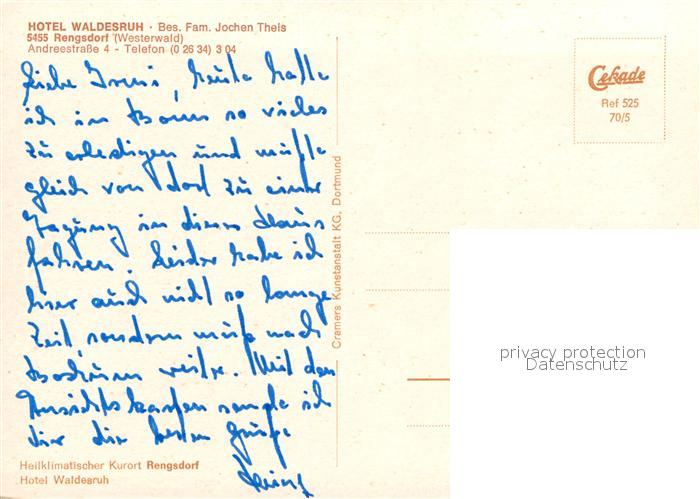 HOTEL WALDESRUH · Bes. Fam. Jochen Theis
5455 Rengsdorf (Westerwald)
Andreestraße 4 - Telefon (0 26 34) 3 04
Liebe Irmi, heute hatte
ich in Bonn so vieles
zu erledigen und mußte
gleich von dort zu einer
Tagung in dieses Haus
fahren. Leider habe ich
hier auch nicht so lange
Zeit, sondern muß nach
Bochum weiter. Mit den
Ansichtskarten sende ich
dir die besten Grüße
Heinz
Heilklimatischer Kurort Rengsdorf
Hotel Waldesruh
Cramers Kunstanstalt KG, Dortmund
Cekade
Ref 525
70/5
privacy protection
Datenschutz